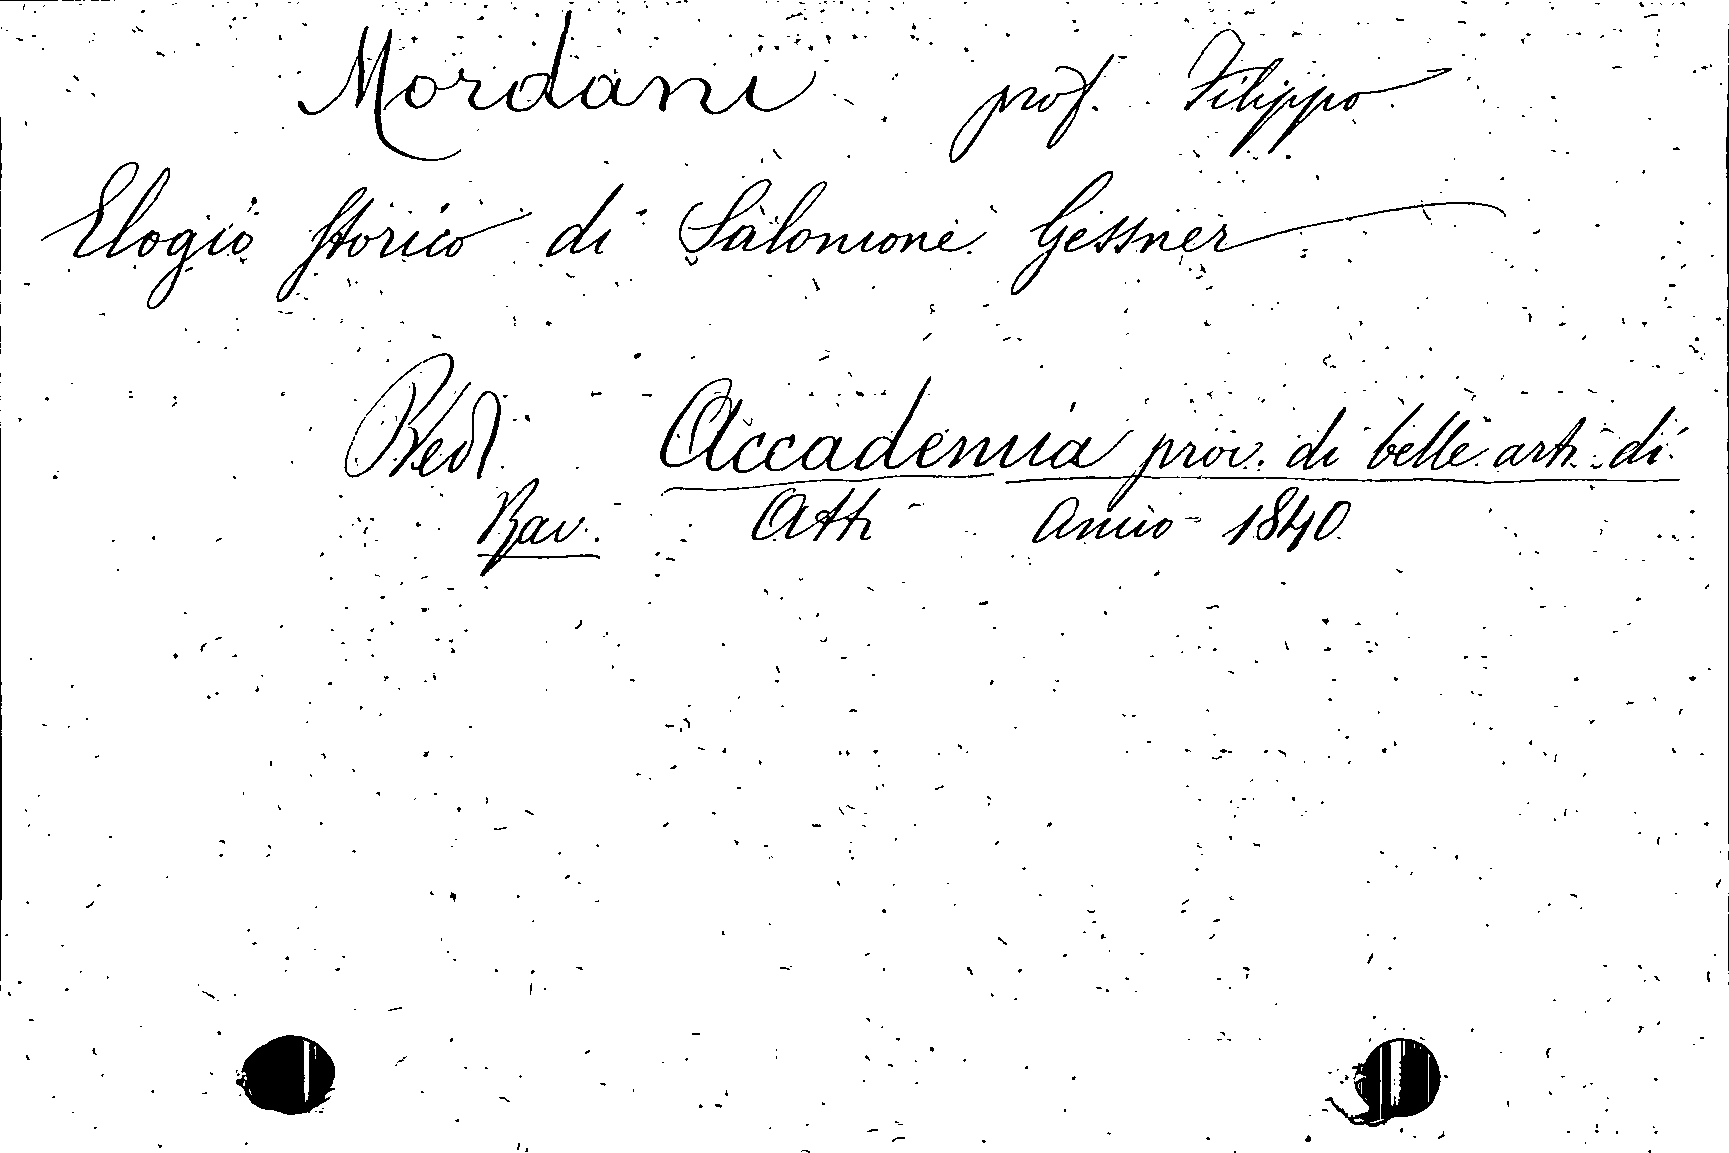 Mordani prof. Filippo
Elogio storico di Salomone Gessner
Ved Accademia prov. di belle arti di
Rav. Atti Anno 1840